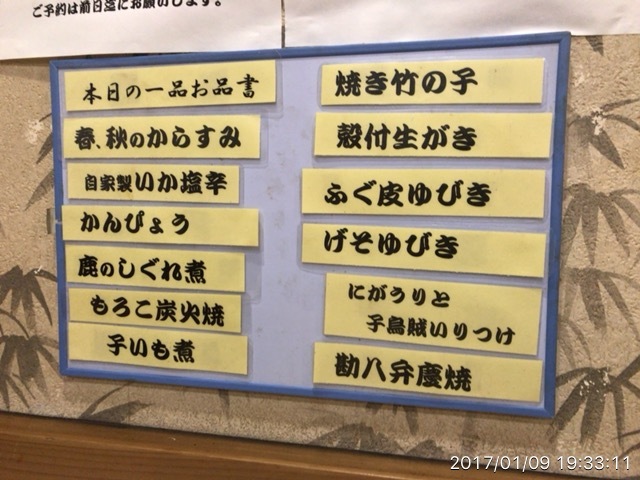 ご予約は前日迄にお願いします。
本日の一品お品書
春、秋のからすみ
自家製いか塩辛
かんぴょう
鹿のしぐれ煮
もろこ炭火焼
子いも煮
焼き竹の子
殻付生がき
ふぐ皮ゆびき
げそゆびき
にがうりと
子烏賊いりつけ
勘八弁慶焼
2017/01/09 19:33:11